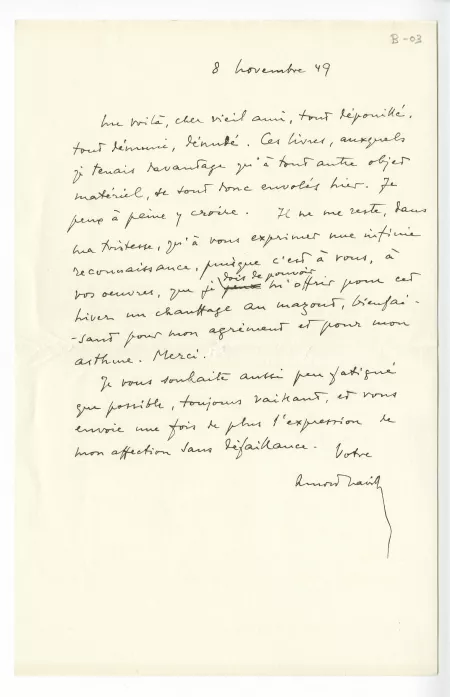 B-03
8 novembre 49
Me voilà, cher vieil ami, tout dépouillé,
tout démuni, dénudé. Ces livres, auxquels
je tenais davantage qu'à tout autre objet
matériel, se sont donc envolés hier. Je
peux à peine y croire. Il ne me reste, dans
ma tristesse, qu'à vous exprimer une infinie
reconnaissance, puisque c'est à vous, à
vos oeuvres, que je dois de pouvoir m'offrir pour cet
hiver un chauffage au mazout, bienfai-
-sant pour mon agrément et pour mon
asthme. Merci.
Je vous souhaite aussi peu fatigué
que possible, toujours vaillant, et vous
envoie une fois de plus l'expression de
mon affection sans défaillance. Votre